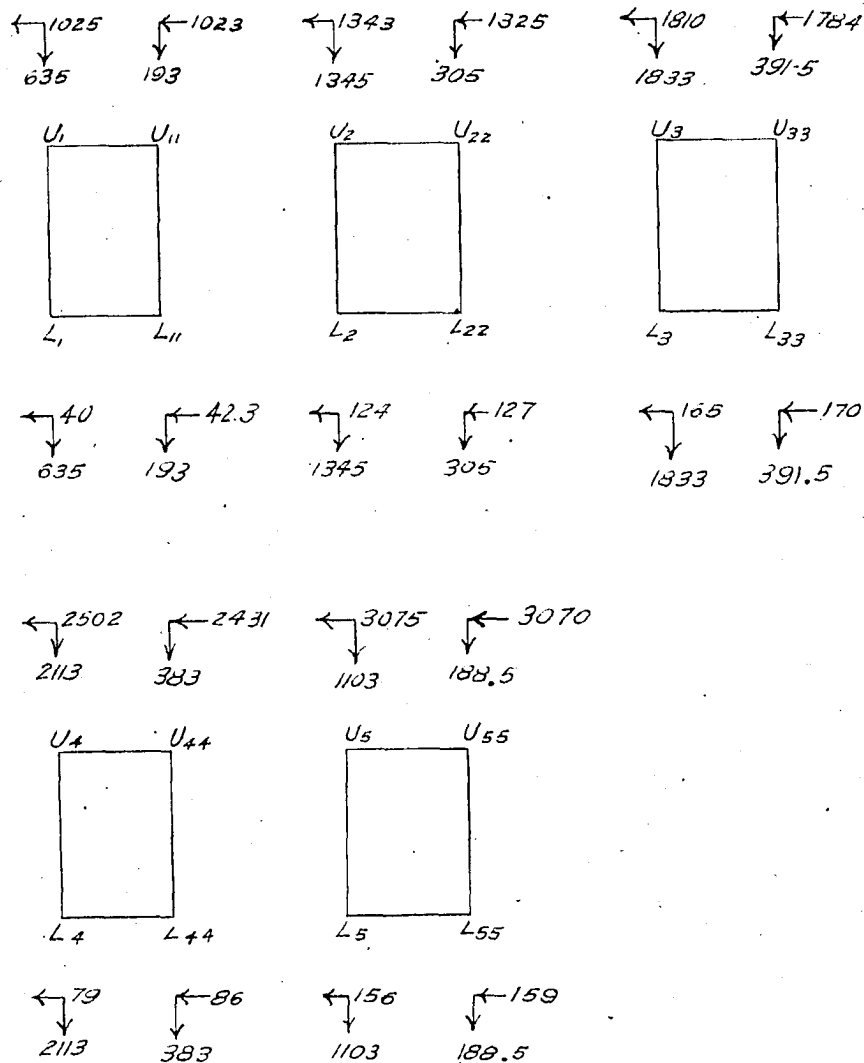 1025 1023 1343 1325 1810 1784
635 193 1345 305 1833 391.5
U1 U11 U2 U22 U3 U33
L1 L11 L2 L22 L3 L33
40 42.3 124 127 165 170
635 193 1345 305 1833 391.5
2502 2431 3075 3070
2113 383 1103 188.5
U4 U44 U5 U55
L4 L44 L5 L55
79 86 156 159
2113 383 1103 188.5